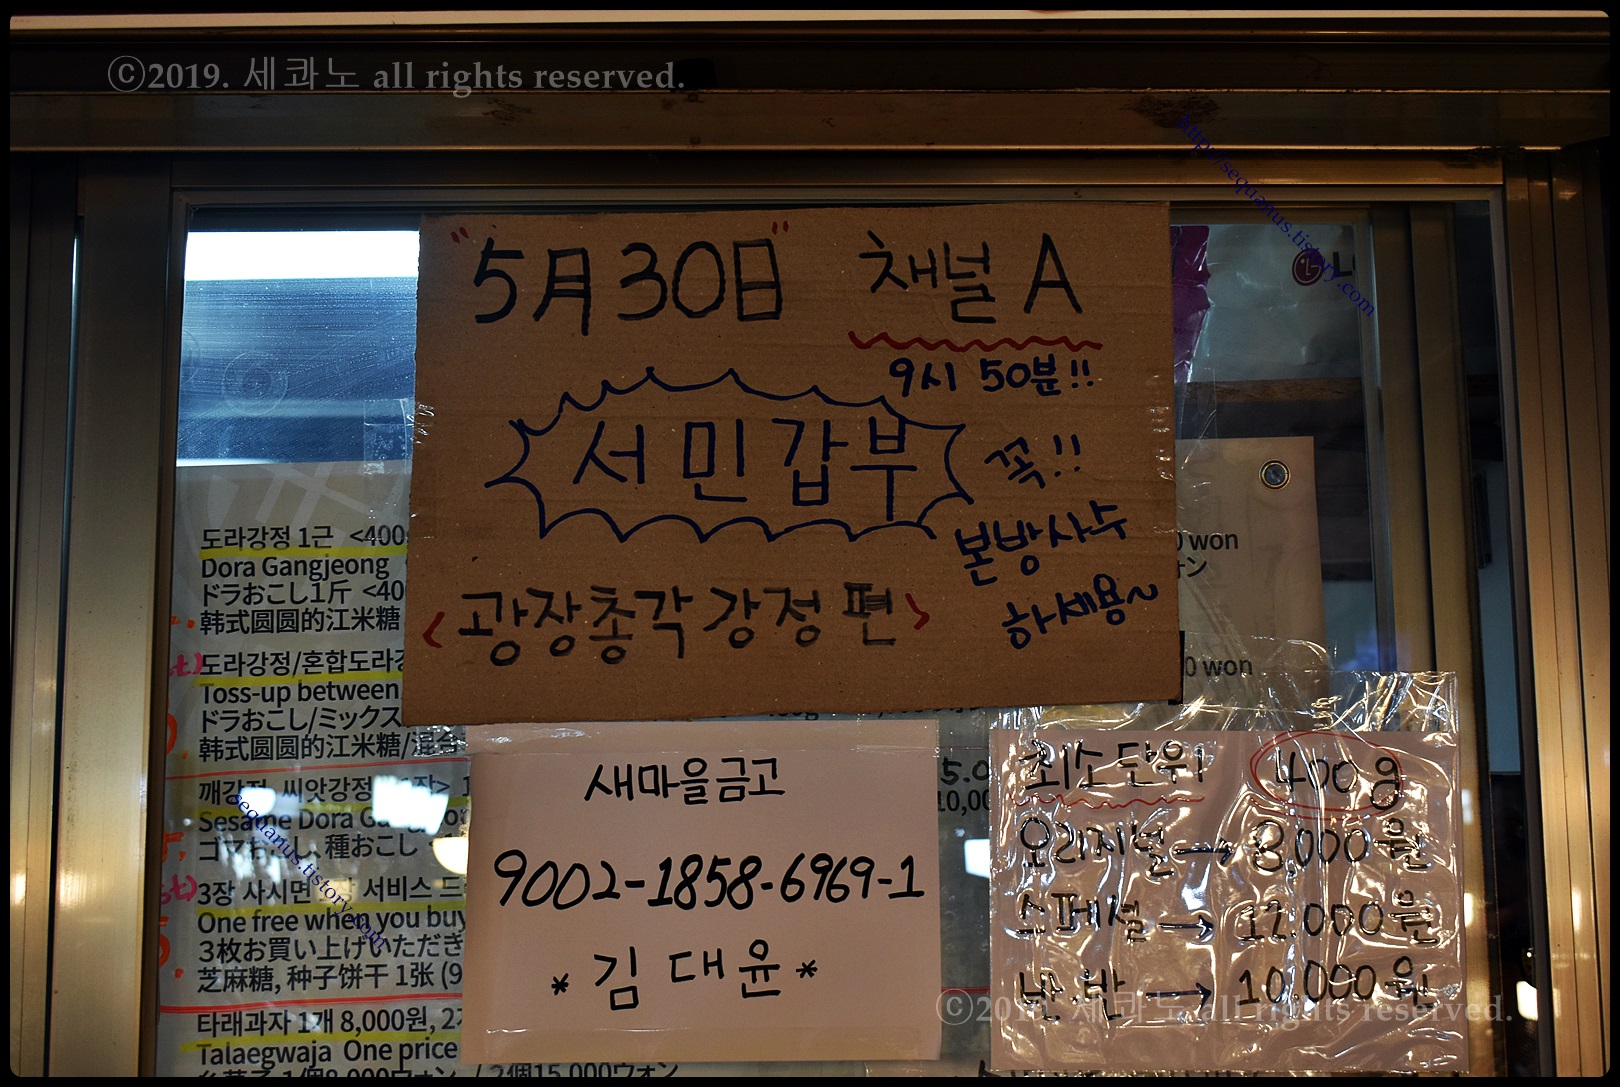 ©2019. 세콰노 all rights reserved.
http://sequanus.tistory.com
"5月30日" 채널 A
9시 50분!!
서민갑부
꼭!!
본방사수
하세용~
<광장총각 강정 편>
LG
도라강정 1근 <400g
Dora Gangjeong
ドラおこし1斤 <40
韩式圆圆的江米糖
도라강정/혼합도라강
Toss-up between
ドラおこし/ミックス
韩式圆圆的江米糖/混合
깨강정, 씨앗강정
Sesame Dora
ゴマおこし, 種おこし
3장 사시면 서비스
One free when you buy
3枚お買い上げいただき
芝麻糖, 种子饼干 1张 (9
타래과자 1개 8,000원, 2
Talaegwaja One price
1個8,000ウォン / 2個15,000ウォン
0 won
ォン
0 won
5.0
10,00
새마을금고
9002-1858-6969-1
*김대윤*
최소단위 400g
오리지널 → 8,000원
스페셜 → 12.000원
반.반 → 10.000원
sequanus.tistory.com
©2019. 세콰노 all rights reserved.